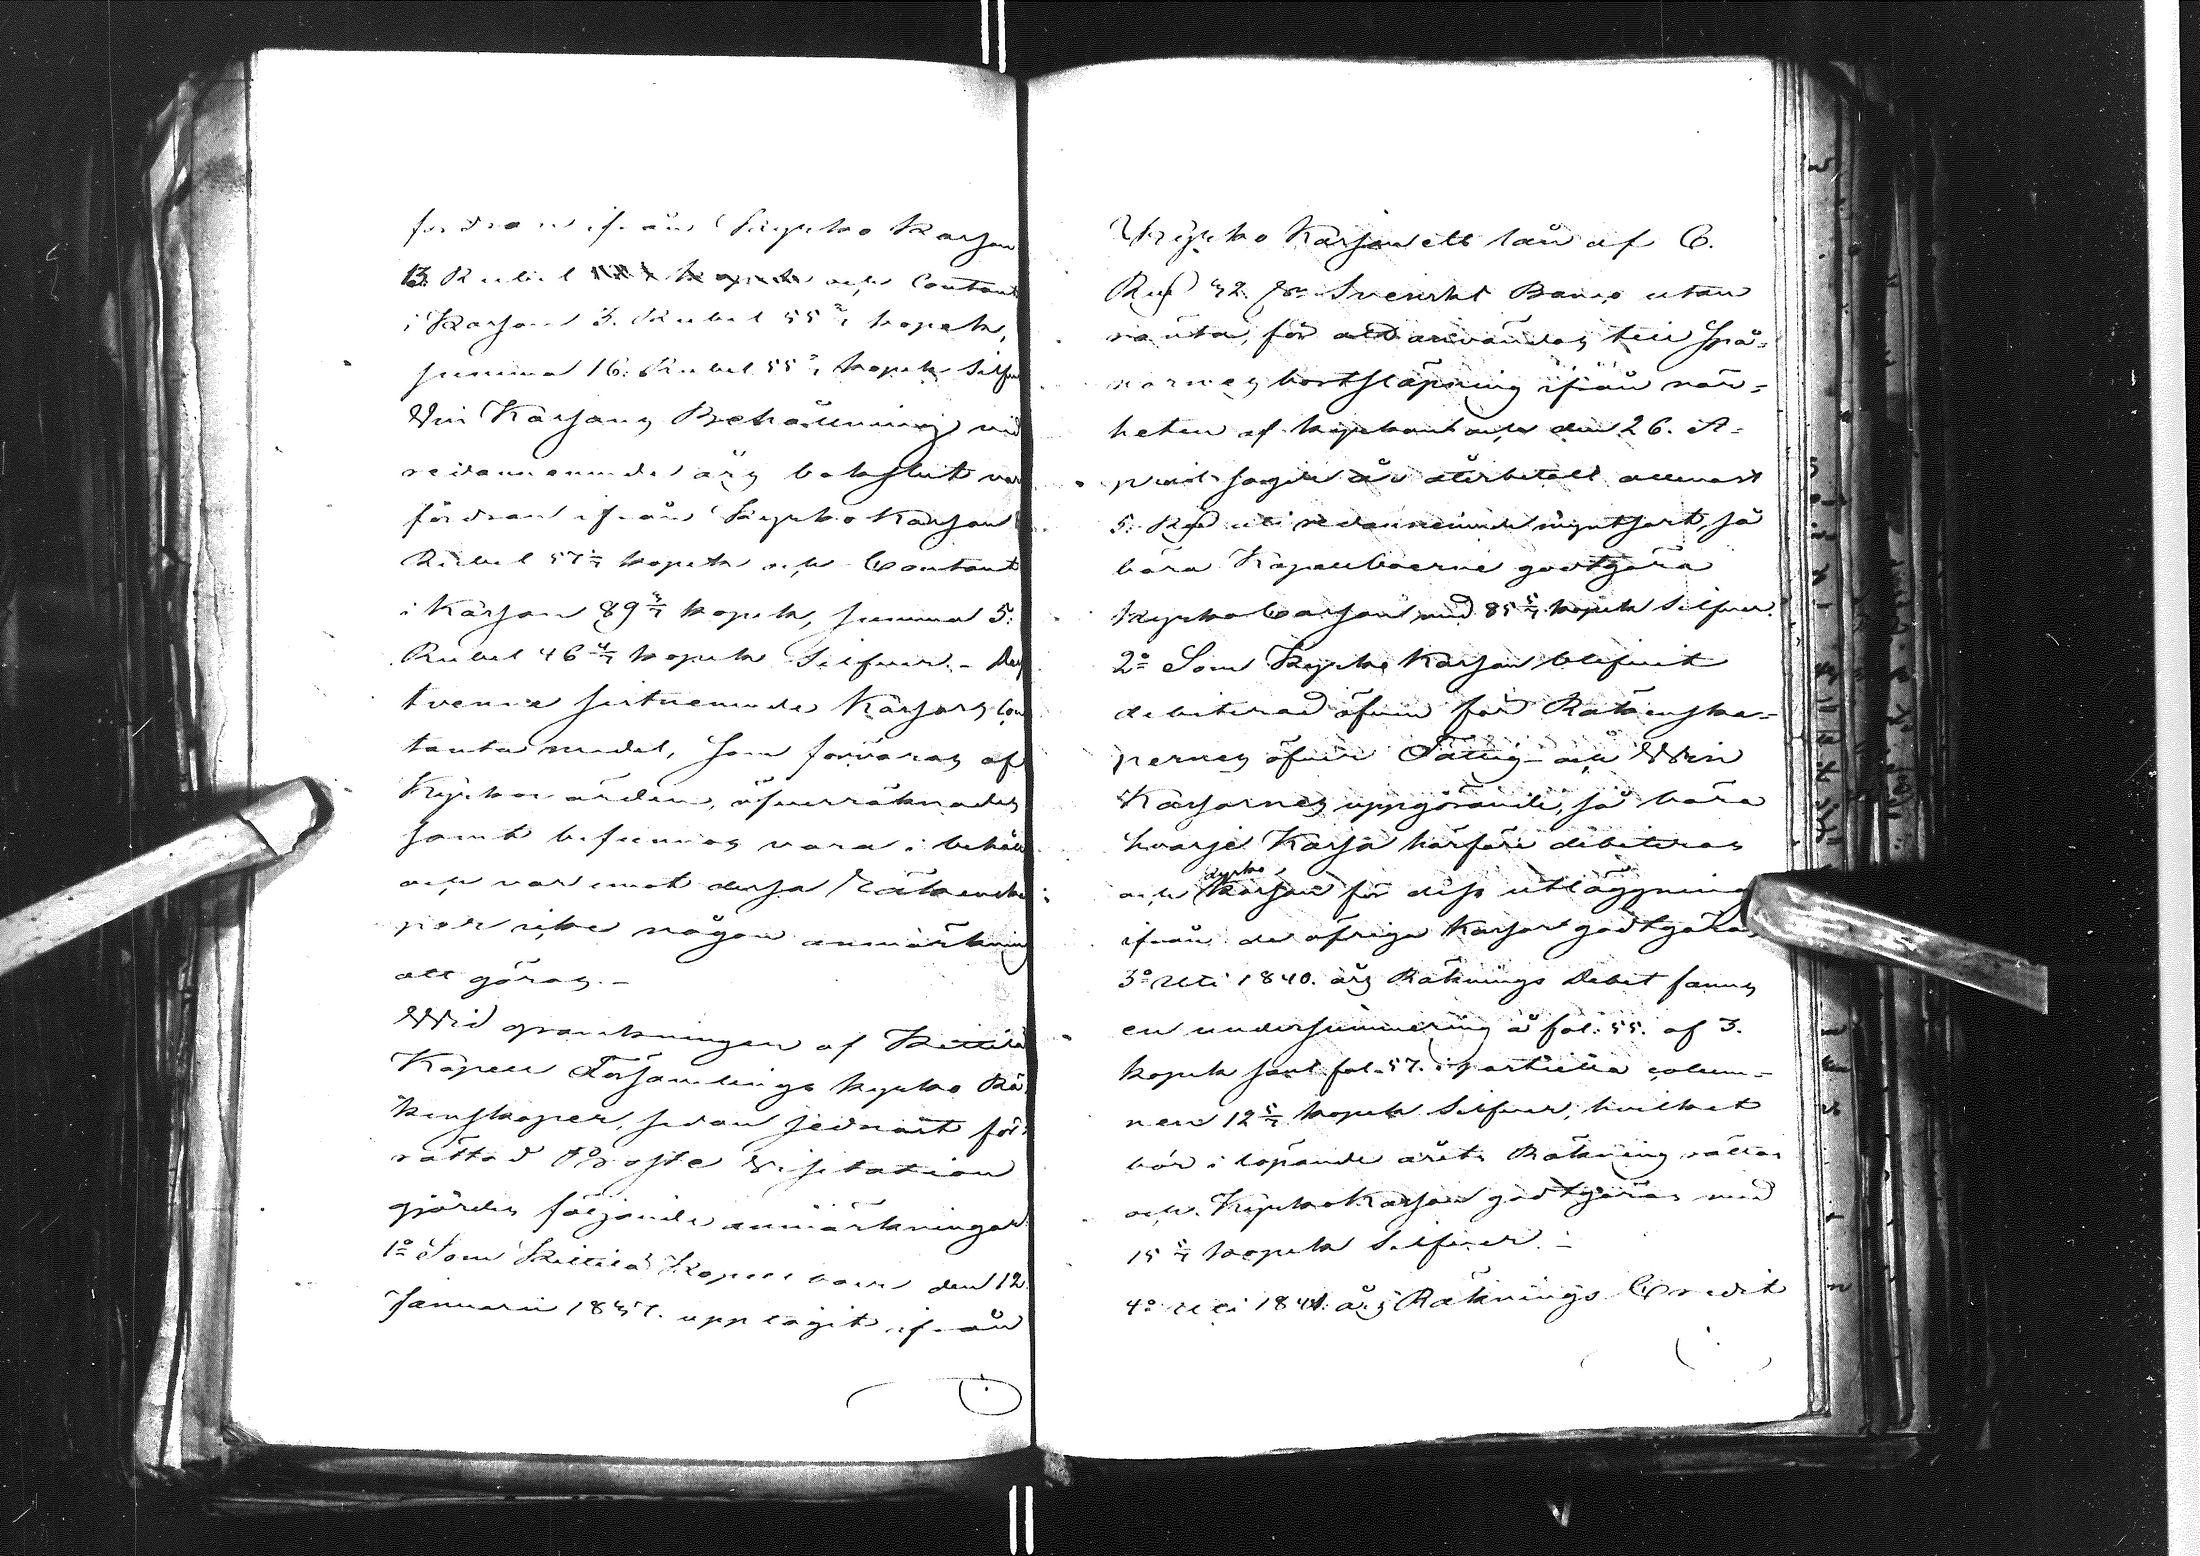 fordran ifrån Kyrko Kassan
13. Rubel och Contant
i Kassan 3. Rubel 55 2/7 kopek,
summa 16. Rubel 55 2/7 kopek Silfver
Vin Kassans Behållning vid
redannämnde års bokslut var
fordran ifrån Kyrko Kassan
Rubel 57 1/7 kopek och Contant
i Kassan 89 3/7 kopek, summa 5.
Rubel 46 4/7 kopek Silfver. - Des
tvenne sistnemnde Kassors Con
tanta medel, som förvaras af
Kyrkovärden, öfverräknades
samt befunnos vara i behåll
och var emot dessa Räkenska
per icke någon anmärkning
att göras. -
Wid granskningen af Kittilä
Kapell Församlings kyrko Rä-
kenskaper, sedan sednast för-
rättad Proste Visitation
gjordes följande anmärkningar
1o Som Kittilä Kapell boer den 12
Januarii 1837. upplagit ifrån
Kyrko Kassan ett lån af C.
Rd 32 Svenskt Banco utan
ränta, för att användas till
bortsläpning ifrån när=
heten af kyrkan och den 26. A=
pril sagde år återbetalt allenast
5. Rd uti redannemnde myntsort, så
böra Kapellboerne godtgöra
Kyrko Cassan med 85 5/7 kopek Silfver.
2o Som Kyrko Kassan blifvit
debiterad äfven för Räkenska=
pernes öfver Fattig- och Win
Kassornes uppgörande, så böra
hvarje Kassa härföre debiteras
och kyrko Kassan för dess utläggning
ifrån de öfriga Kassor godtgöras
3o Uti 1840. års Räknings Debet fanns
en undersummering å fol. 55. af 3.
kopek samt fol. 57. i partiella colum=
nen 12 5/7 kopek Silfver, hvilket
bör i löpande årets Räkning rättas
och Kyrko Kassan godtgöras med
15 5/7 kopek Silfver. -
4o Uti 1841. års Räknings Credit